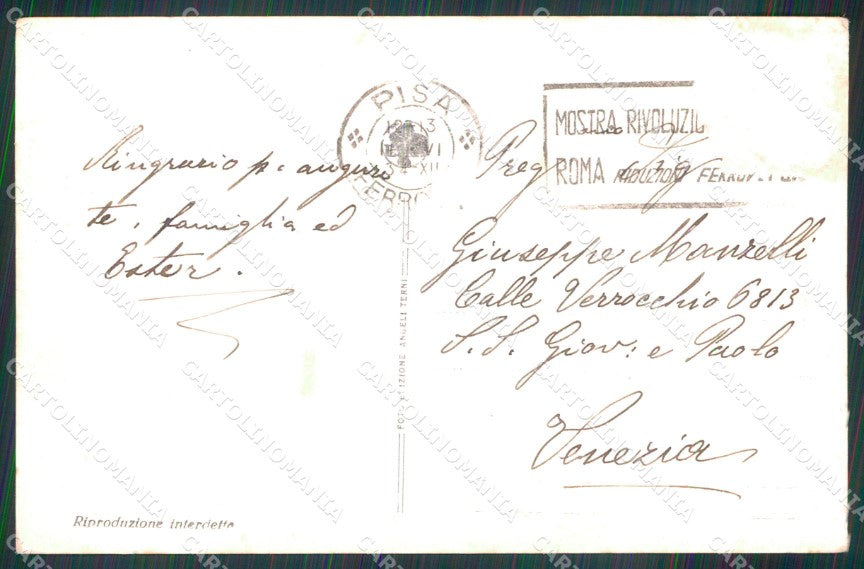 Ringrazio p. auguri
te, famiglia ed
Ester.
PISA
MOSTRA RIVOLUZI
ROMA RIDUZIONI FERROV
Preg
Giuseppe Manzelli
Calle Verrocchio 6813
S.S. Giov: e Paolo
Venezia
FOTO EDIZIONE ANGELI TERNI
Riproduzione interdetta
CARTOLINOMANIA